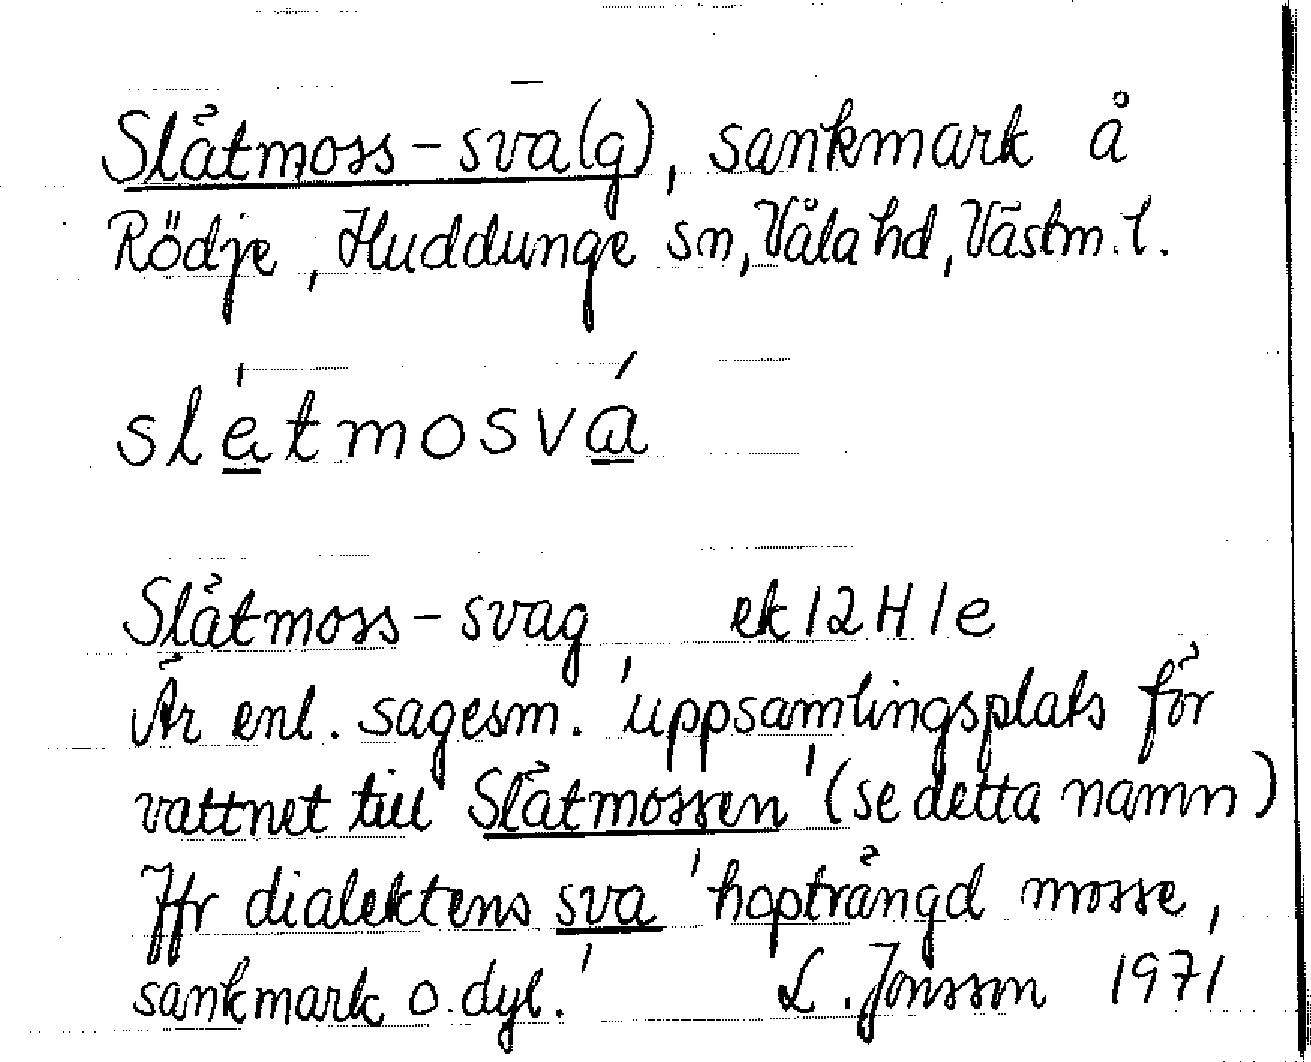 Slåtmoss-sva(g), sankmark å
Rödje, Huddunge sn, Våla hd, Västm. l.
slatmosva
Slåtmoss-svag, ek 12 H 1 e
Är enl. sagesm. 'uppsamlingsplats för
vattnet till Slåtmossen' (se detta namn)
Jfr dialektens sva 'hopträngd mosse,
sankmark o. dyl.' L. Jonsson 1971